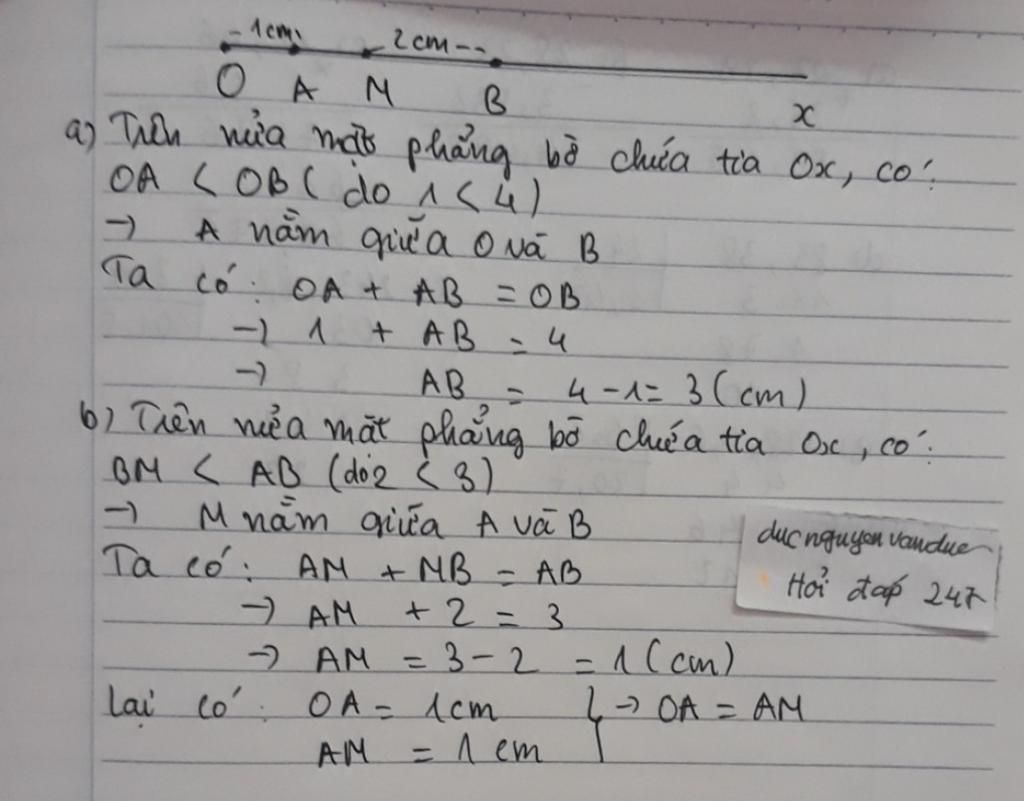 1cm 2cm
O A M B x
a) Trên nửa mặt phẳng bờ chứa tia Ox, có:
OA < OB ( do 1 < 4 )
→ A nằm giữa O và B
Ta có: OA + AB = OB
→ 1 + AB = 4
→ AB = 4 - 1 = 3 (cm)
b) Trên nửa mặt phẳng bờ chứa tia Ox, có:
BM < AB (do 2 < 3)
→ M nằm giữa A và B
Ta có: AM + MB = AB
→ AM + 2 = 3
→ AM = 3 - 2 = 1 (cm)
Lại có: OA = 1cm } → OA = AM
AM = 1cm
ducnguyenvanduc
Hỏi đáp 247